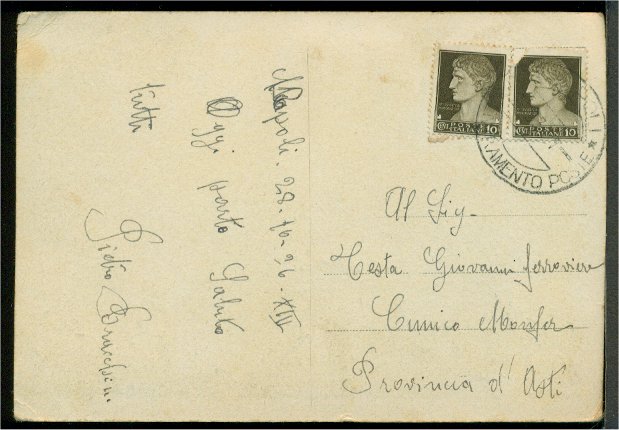 Napoli. 28-10-36-XIII
Oggi parto Saluto
tutti
Pietro
POSTE
ITALIANE 10
POSTE
ITALIANE 10
AMENTO POSTE
Al Sig-
Testa Giovanni ferroviere
Cunico Monfer
Provincia d'Asti